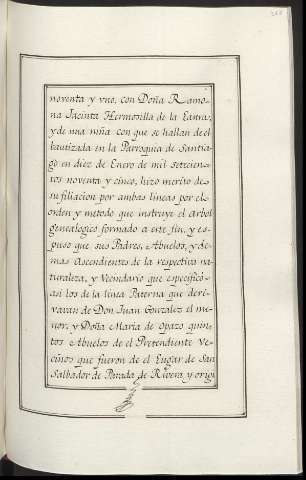 noventa y vno, con Doña Ramo-
na Jacinta Hermosilla de la Canra,
y de una niña con que se hallan de el
bautizada en la Parroquia de Santia-
go en diez de Enero de mil setecien-
tos noventa y cinco, hizo merito de
su filiacion por ambas lineas por el
orden y metodo que instruye el arbol
genealogico formado a este fin, y es-
puso que sus Padres, Abuelos, y de-
mas Ascendientes de la respectiva na-
turaleza, y Vecindario que especificó
asi los de la linea Paterna que deri-
vavan de Don Juan Gonzalez el me-
nor, y Doña Maria de Opazo quin-
tos Abuelos de el Pretendiente Ve-
cinos que fueron de el Lugar de San
Salbador de Parada de Rivera y origi